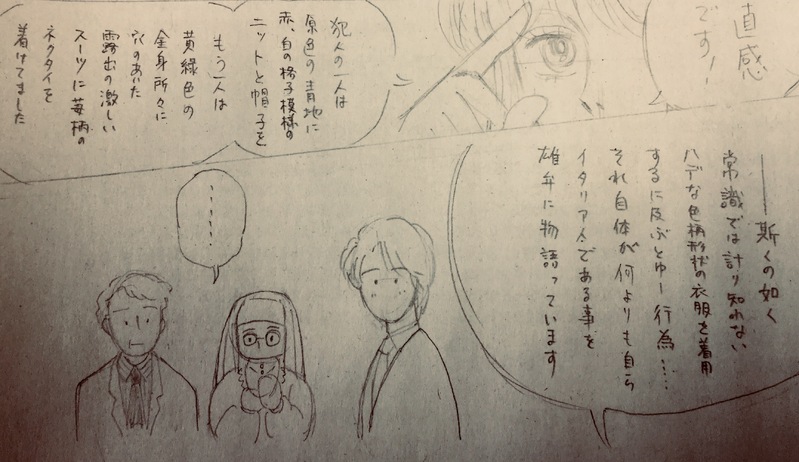 直感
です!!
犯人の一人は
原色の青地に
赤、白の格子模様の
ニットと帽子を
もう一人は
黄緑色の
全身所々に
穴のあいた
露出の激しい
スーツに苺柄の
ネクタイを
着けてました
――斯くの如く
常識では計り知れない
ハデな色柄形状の衣服を着用
するに及ぶとゆー行為……
それ自体が何よりも自ら
イタリア人である事を
雄弁に物語っています
……